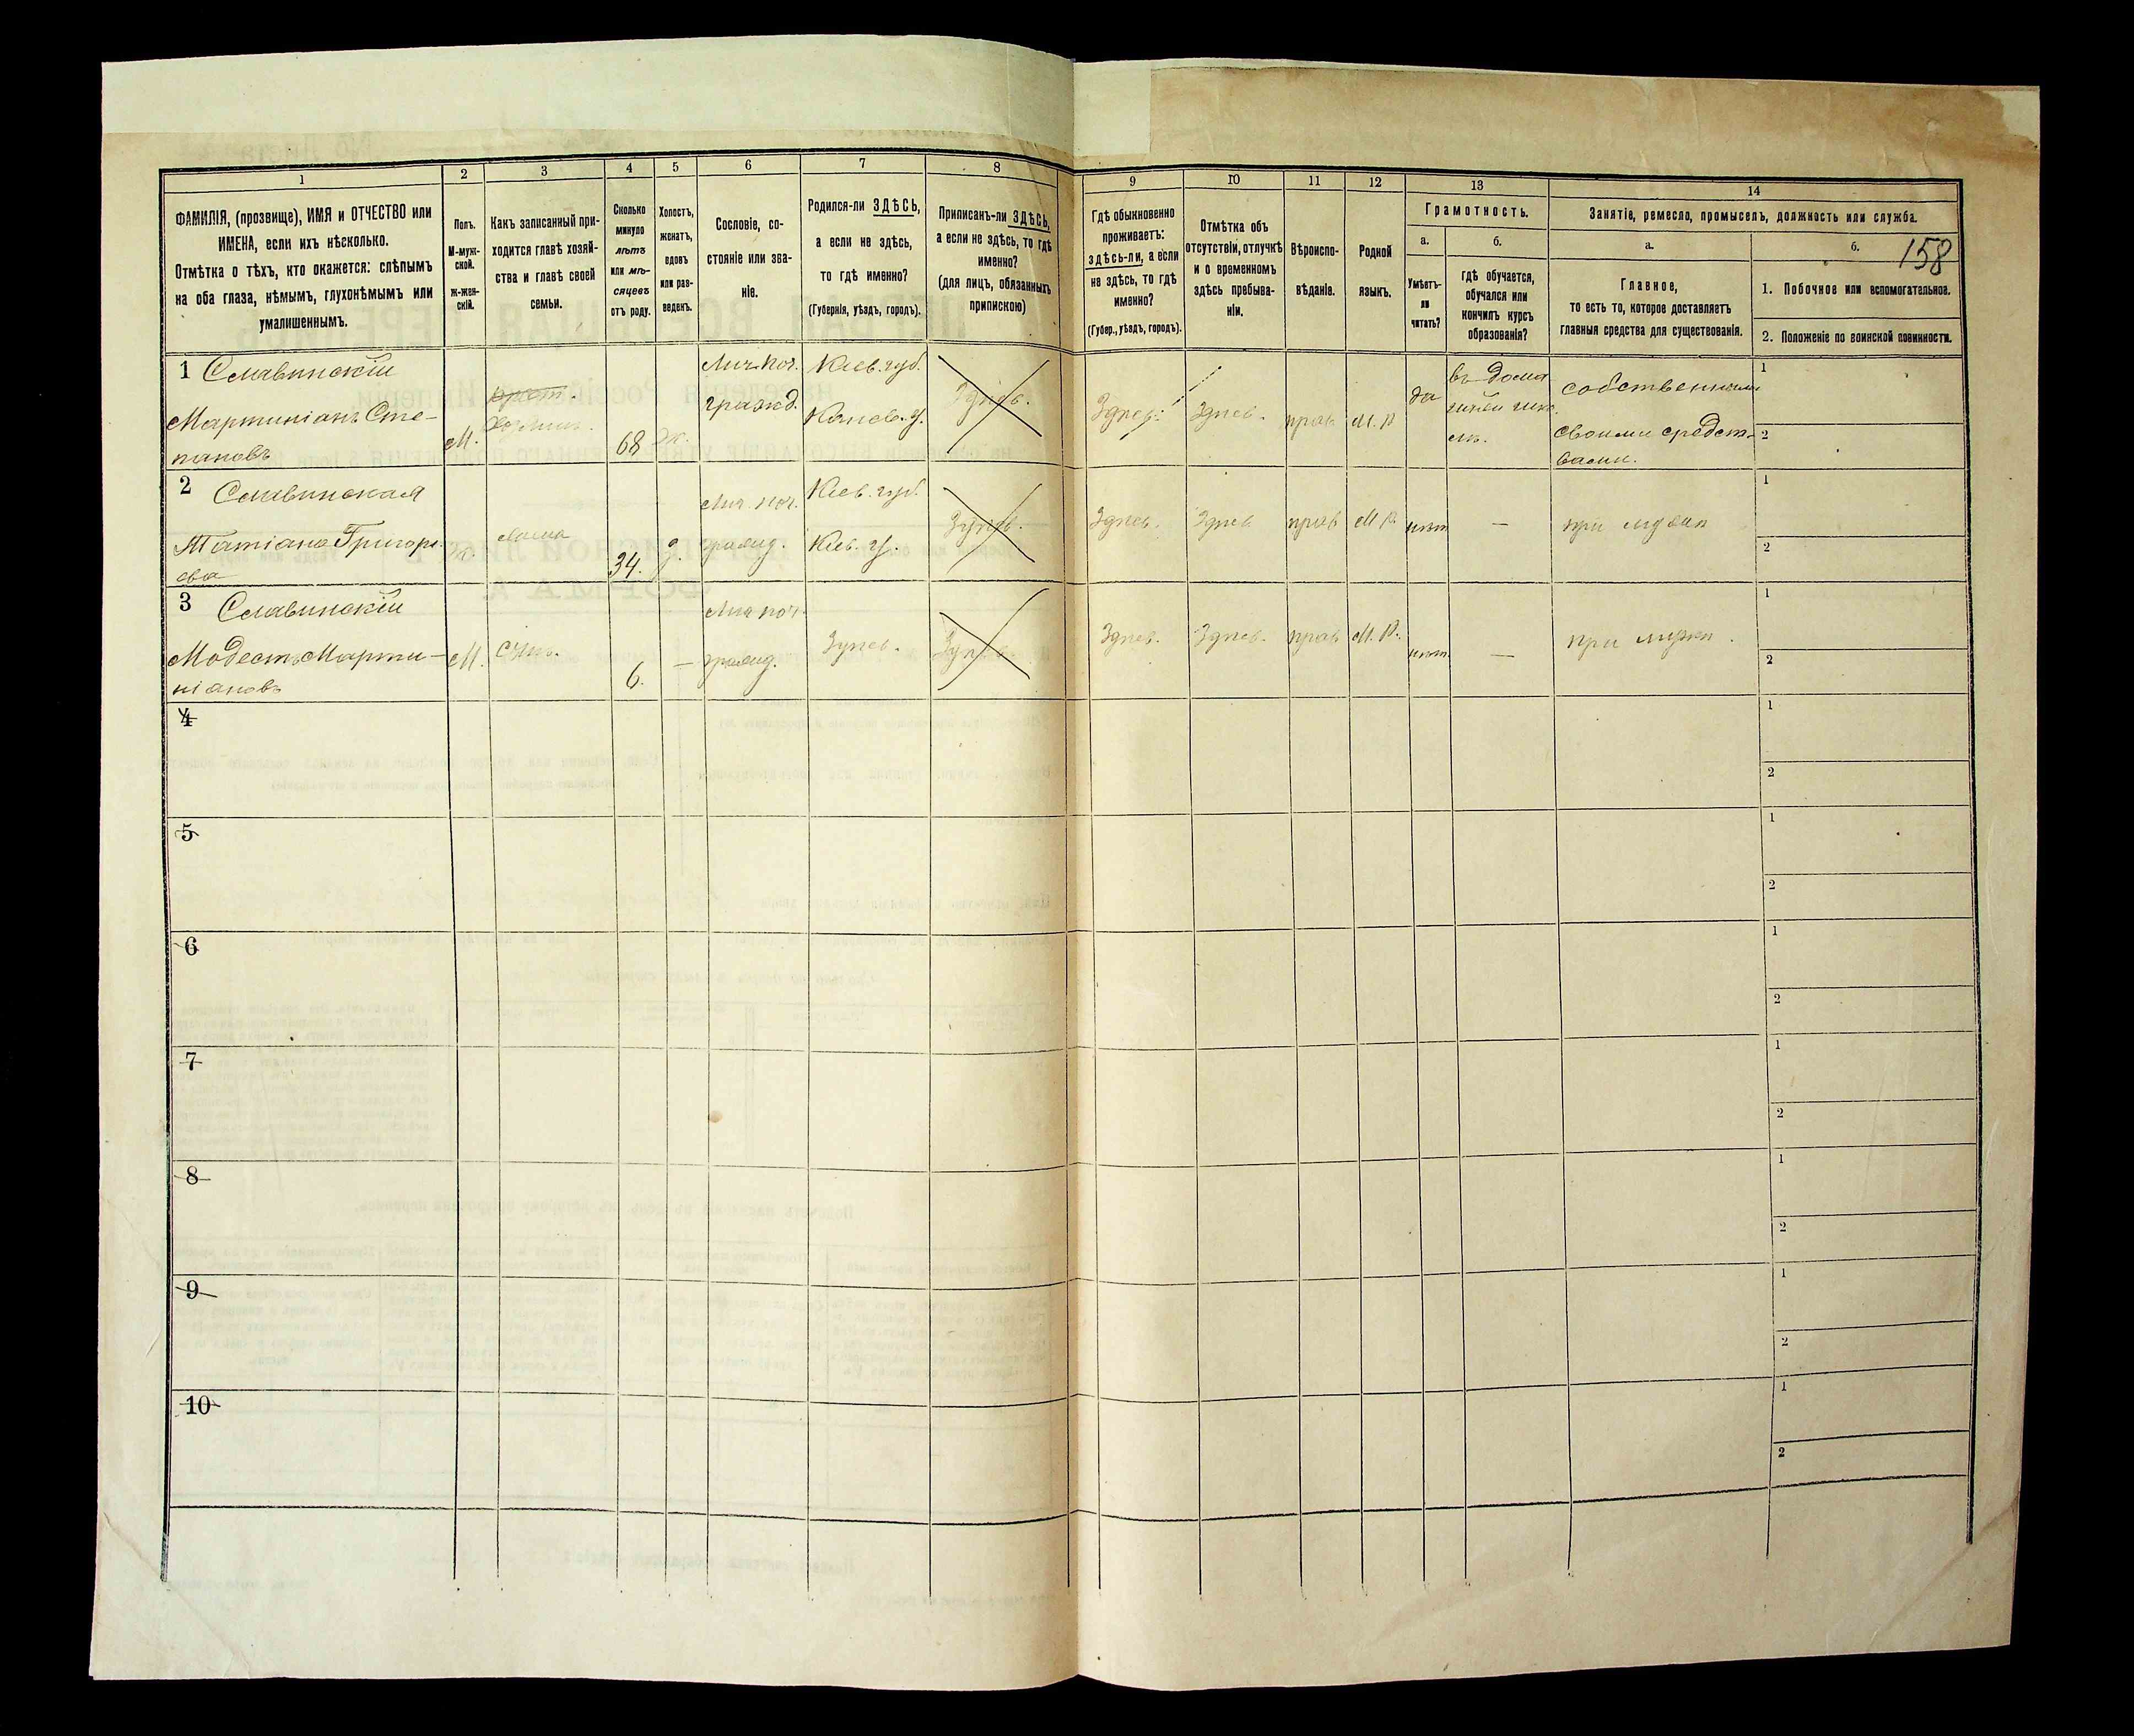 1
2
3
4
5
6
7
8
9
10
11
12
13
14
ФАМИЛІЯ, (прозвище), ИМЯ и ОТЧЕСТВО или
ИМЕНА, если ихъ нѣсколько.
Отмѣтка о тѣхъ, кто окажется: слѣпымъ
на оба глаза, нѣмымъ, глухонѣмымъ или
умалишеннымъ.
Полъ.
М-муж-
ской.
ж-жен-
скій.
Какъ записанный при-
ходится главѣ хозяй-
ства и главѣ своей
семьи.
Сколько
минуло
лѣтъ
или мѣ-
сяцевъ
отъ роду.
Холостъ,
женатъ,
вдовъ
или раз-
веденъ.
Сословіе, со-
стояніе или зва-
ніе.
Родился-ли ЗДѢСЬ,
а если не здѣсь,
то гдѣ именно?
(Губернія, уѣздъ, городъ).
Приписанъ-ли ЗДѢСЬ,
а если не здѣсь, то гдѣ
именно?
(для лицъ, обязанныхъ
припискою)
Гдѣ обыкновенно
проживаетъ:
здѣсь-ли, а если
не здѣсь, то гдѣ
именно?
(Губер., уѣздъ, городъ).
Отмѣтка объ
отсутствіи, отлучкѣ
и о временномъ
здѣсь пребыва-
ніи.
Вѣроиспо-
вѣданіе.
Родной
языкъ.
Грамотность.
а.
б.
Умѣетъ-
ли
читать?
гдѣ обучается,
обучался или
кончилъ курсъ
образованія?
Занятіе, ремесло, промыселъ, должность или служба.
а.
б.
158
Главное,
то есть то, которое доставляетъ
главныя средства для существованія.
1. Побочное или вспомогательное.
2. Положеніе по воинской повинности.
1 Славинскій
Мартиніанъ Сте-
пановъ
М.
68
ж.
Лич. поч.
гражд.
Кіев. губ.
Канев. у.
Здѣсь.
Здѣсь.
Здѣсь.
прав
М. Р.
да
въ дома
собственными
своими средст-
вами.
1
2
2 Славинская
Татіана Григорь
ева
ж.
жена
34.
з.
Лич. поч.
гражд.
Кіев. губ.
Кіев. у.
Здѣсь.
Здѣсь.
Здѣсь
прав
М. Р.
нѣт
—
при мужѣ
1
2
3 Славинскій
Модестъ Марти-
ніановъ
М.
сынъ.
6.
—
Лич поч.
гражд.
Здѣсь.
Здѣсь.
Здѣсь.
Здѣсь.
прав
М. Р.
нѣт.
—
1
2
4
1
2
5
1
2
6
1
2
7
1
2
8
1
2
9
1
2
10
1
2